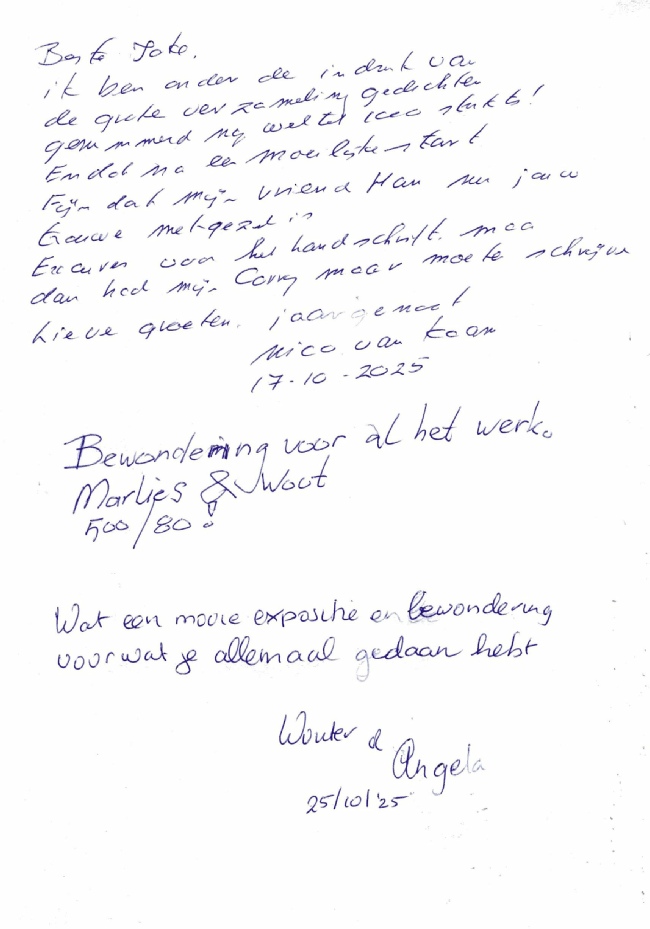 Beste Joke,
ik ben onder de indruk van
de grote verzameling gedichten
genummerd nog wel tot 1000 stuks!
En dat na een moeilijke start
Fijn dat mijn vriend Han nu jouw
trouwe metgezel is
Excuses voor het handschrift. maar
dan had mijn Corry maar moeten schrijven
Lieve groeten. jaargenoot
Nico van
17-10-2025
Bewondering voor al het werk.
Marlies & Wout
500/80!
Wat een mooie expositie en bewondering
voor wat je allemaal gedaan hebt
Wouter & Angela
25/10/'25